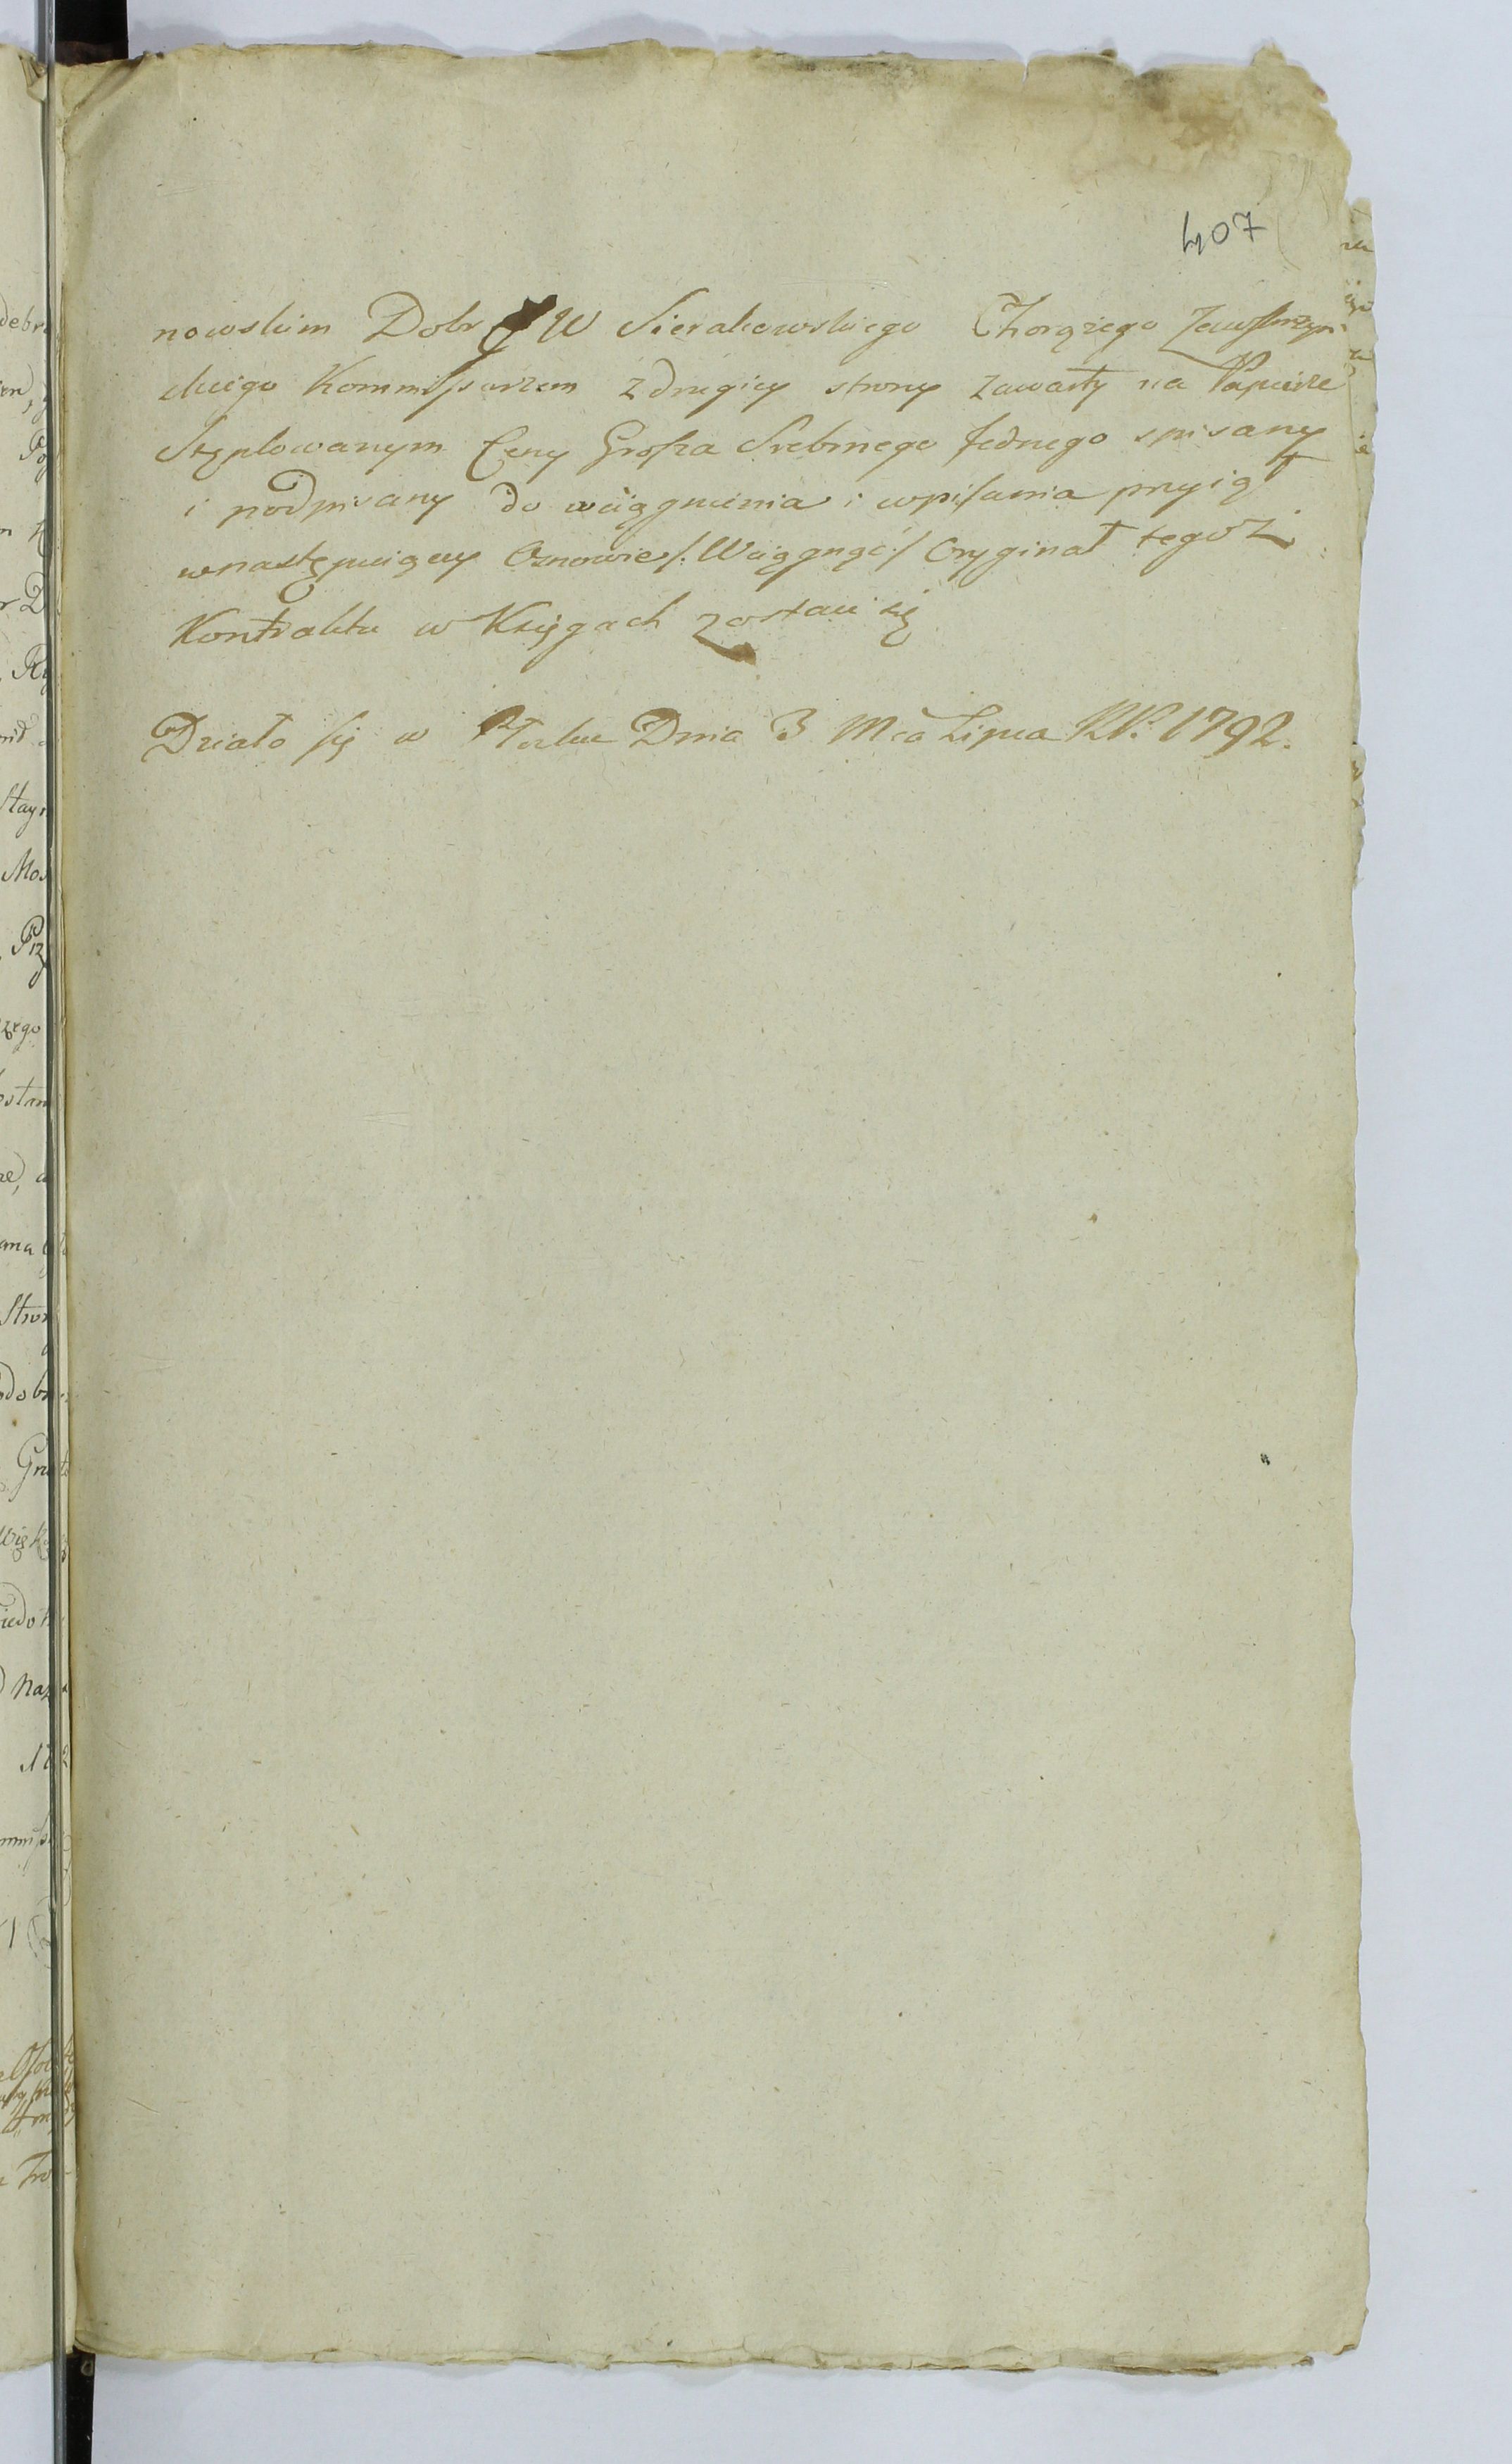 407
nowskim Dobr JW Sierakowskiego Chorążego Zawskrzyn
skiego Kommissarzem z drugiey strony zawarty na Papierze
Stęplowanym Ceny Grosza Srebrnego Jednego spisany
i podpisany do wciągnienia i wpisania przyiął
w następuiącey Osnowie /: Wciągnąć :/ Oryginał tegoż
Kontraktu w Księgach zostaie się
Działo się w Płocku Dnia 3 Mca Lipca RP. 1792.